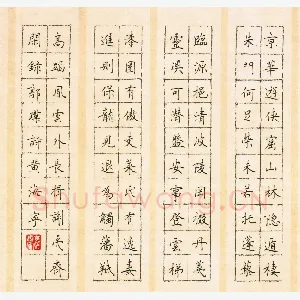 京華遊俠窟山林隱遁棲
朱門何足榮未若托蓬藜
臨源挹清波陵岡掇丹荑
靈溪可潛盤安事登雲梯
漆園有傲吏萊氏有逸妻
進則保龍見退為觸藩羝
高蹈風雲外長揖謝夷齊
錄郭璞詩黃海寧
Shufawang.cn